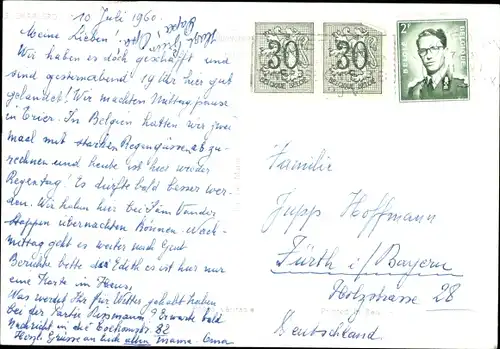 10 Juli 1960.
Meine Lieben!
Wir haben es doch geschafft und
sind gesternabend 19 Uhr hier gut
gelandet! Wir machten Mittagspause
in Trier. In Belgien hatten wir zwei
mal mit starken Regengüssen
rechnen und heute ist hier wieder
Regentag! Es dürfte bald besser wer-
den. Wir haben hier bei
übernachten können. Nach-
mittag geht es weiter nach Gent
Berichte bitte Edith es ist hier nur
eine Karte im Haus,
Was werdet Ihr für Wetter gehabt haben
bei der Partie Erwarte bald
Nachricht in die 82
Herzl. Grüsse an Euch allen Mama Oma
30
30
2F
BELGIQUE BELGIE
BELGIQUE BELGIE
Familie
Jupp Hoffmann
Fürth i/Bayern
Holzstrasse 28
Deutschland